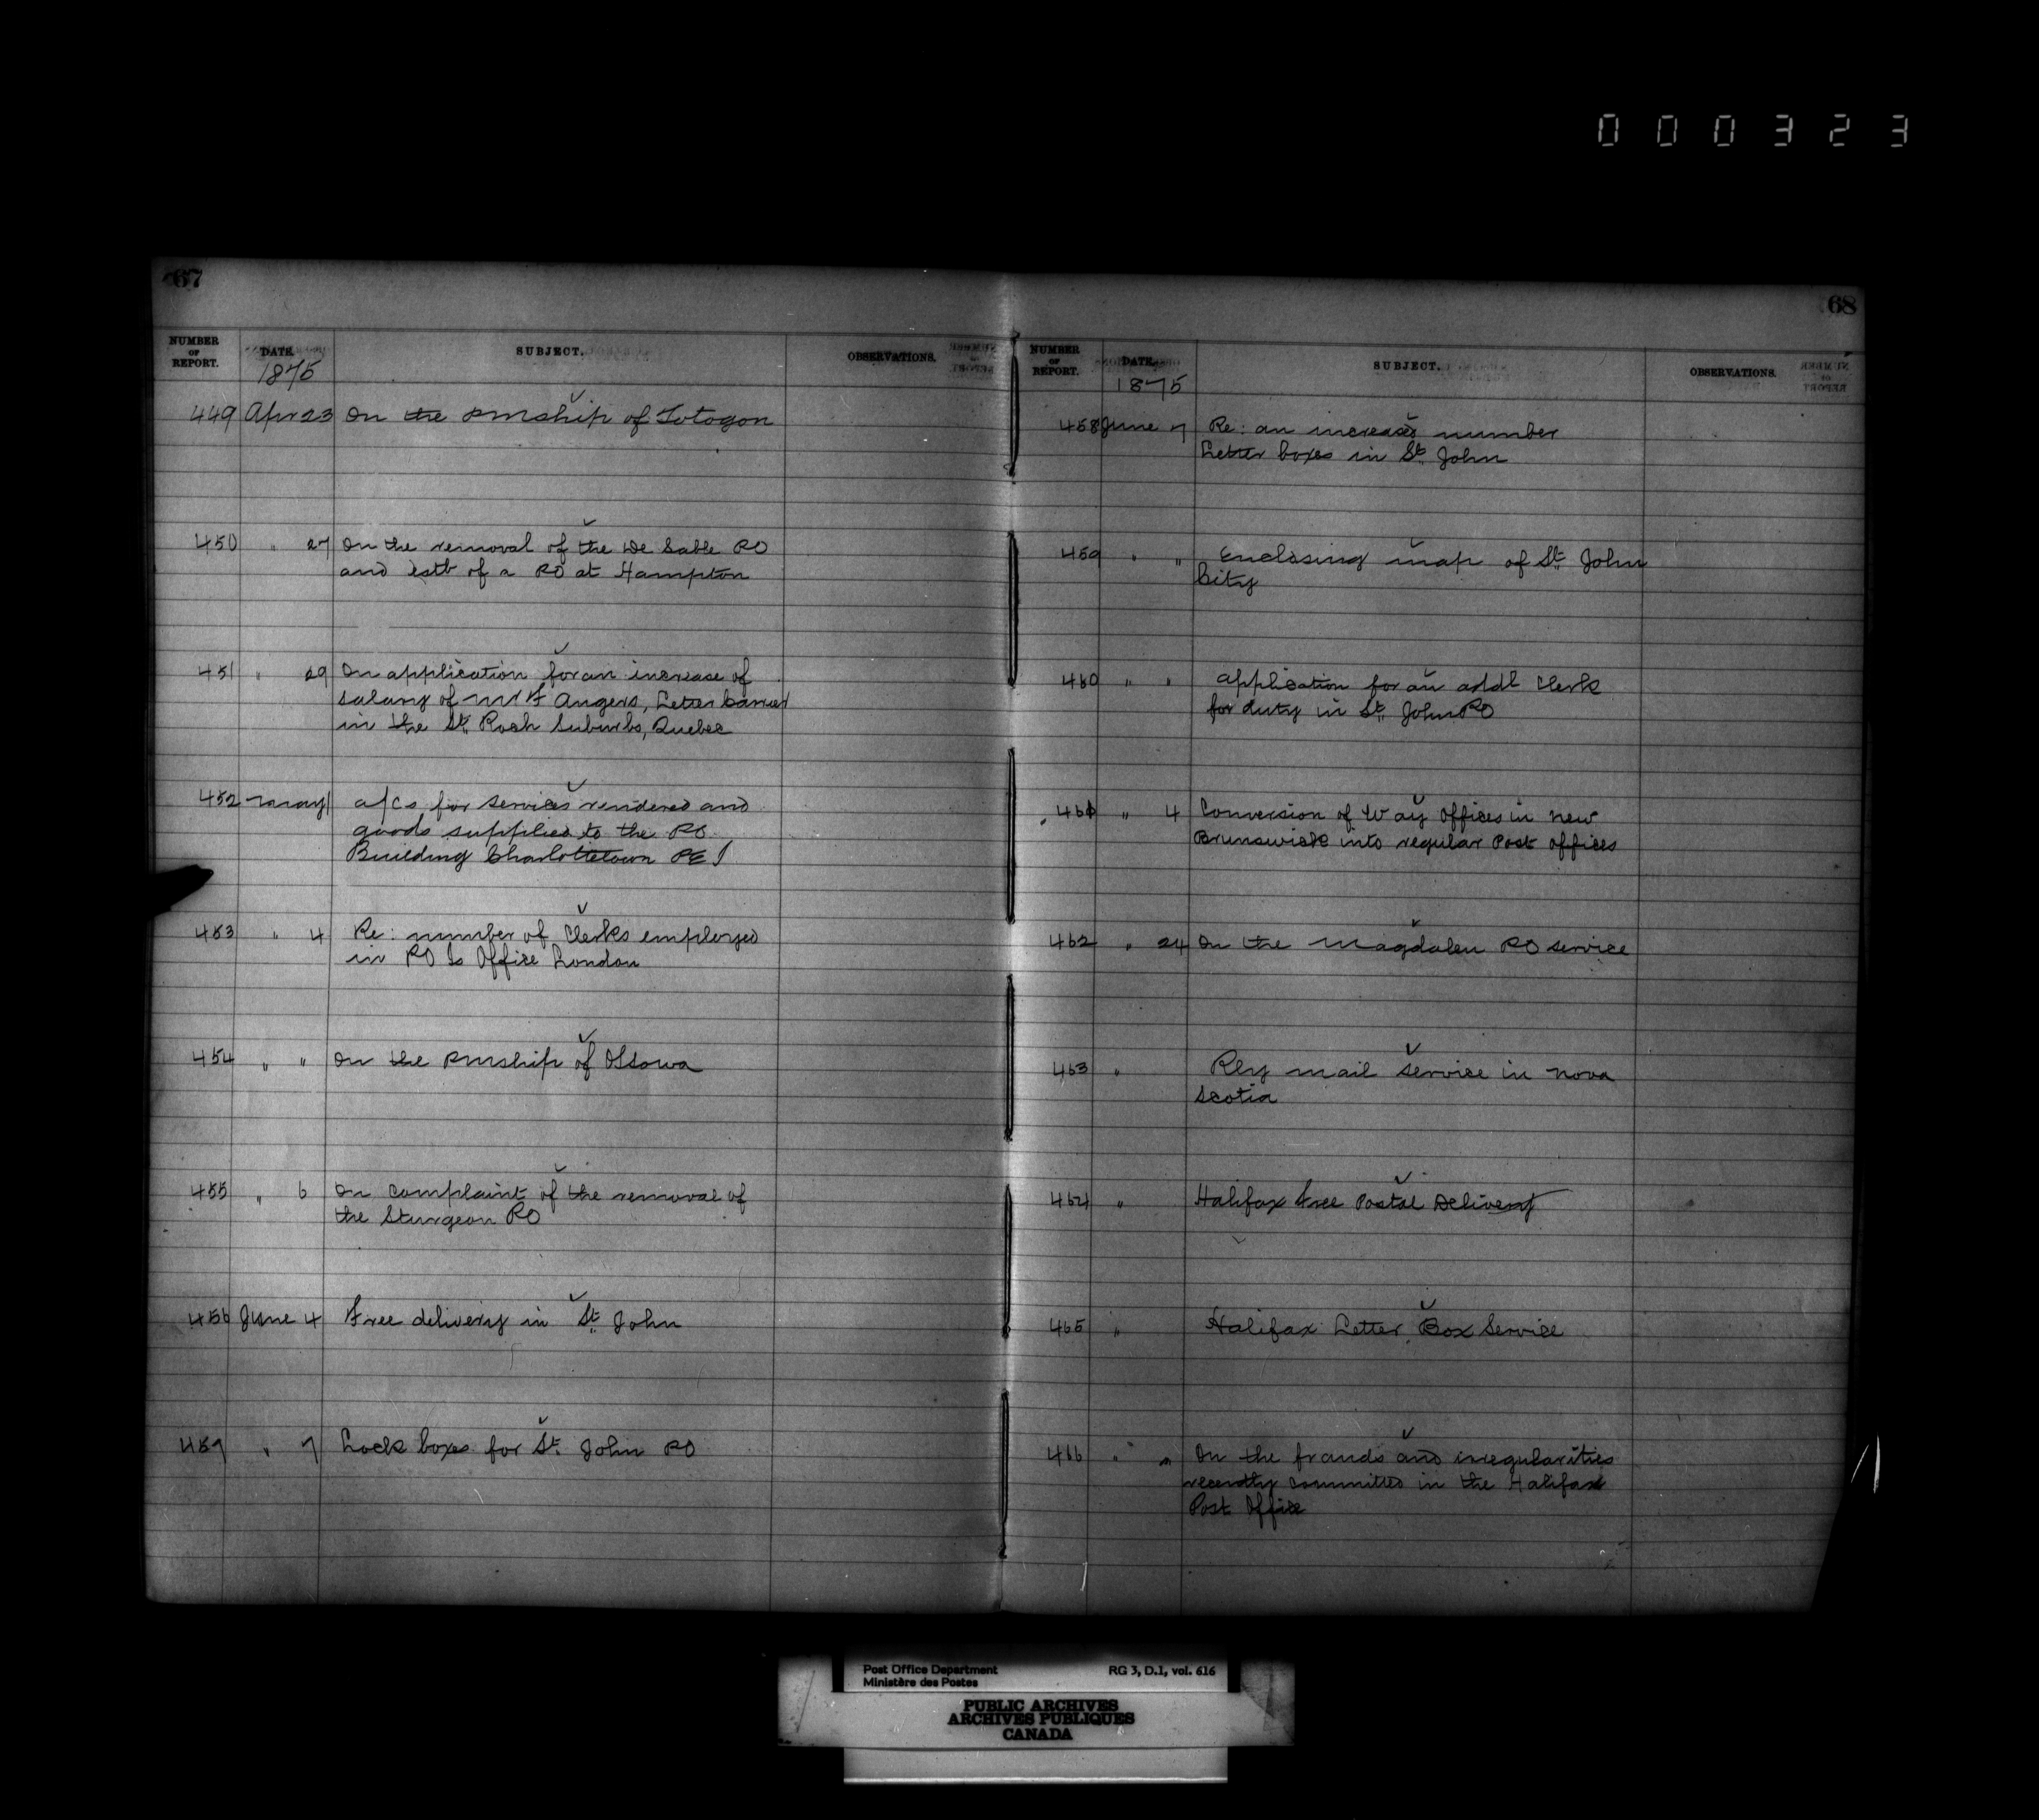 000323
67
NUMBER OF REPORT. DATE. SUBJECT. OBSERVATIONS.
1875
449 Apr 23 On the PMship of Totogon
450 " 27 On the removal of the De Sable PO
and estb of a PO at Hampton
451 " 29 On application for an increase of
salary of Mr F Angers, Letter Carrier
in the St. Roch Suburbs, Quebec
452 May 1 a/cs for services rendered and
goods supplied to the PO
Building Charlottetown PEI
453 " 4 Re: number of Clerks employed
in PO Is Office London
454 " " On the PMship of Ottowa
455 " 6 On complaint of the removal of
the Sturgeon PO
456 June 4 Free delivery in St. John
457 " 7 Lock boxes for St. John PO
68
NUMBER OF REPORT. DATE. SUBJECT. OBSERVATIONS.
1875
458 June 7 Re: an increased number
Letter boxes in St. John
459 " " Enclosing map of St. John
City
460 " " Application for an addl Clerk
for duty in St. John PO
461 " 4 Conversion of Way Offices in New
Brunswick into regular Post Offices
462 " 24 On the Magdalen PO service
463 " Rly mail service in Nova
Scotia
464 " Halifax Free Postal Delivery
465 " Halifax Letter Box Service
466 " " On the frauds and irregularities
recently committed in the Halifax
Post Office
Post Office Department RG 3, D.1, vol. 616
Ministère des Postes
PUBLIC ARCHIVES
ARCHIVES PUBLIQUES
CANADA